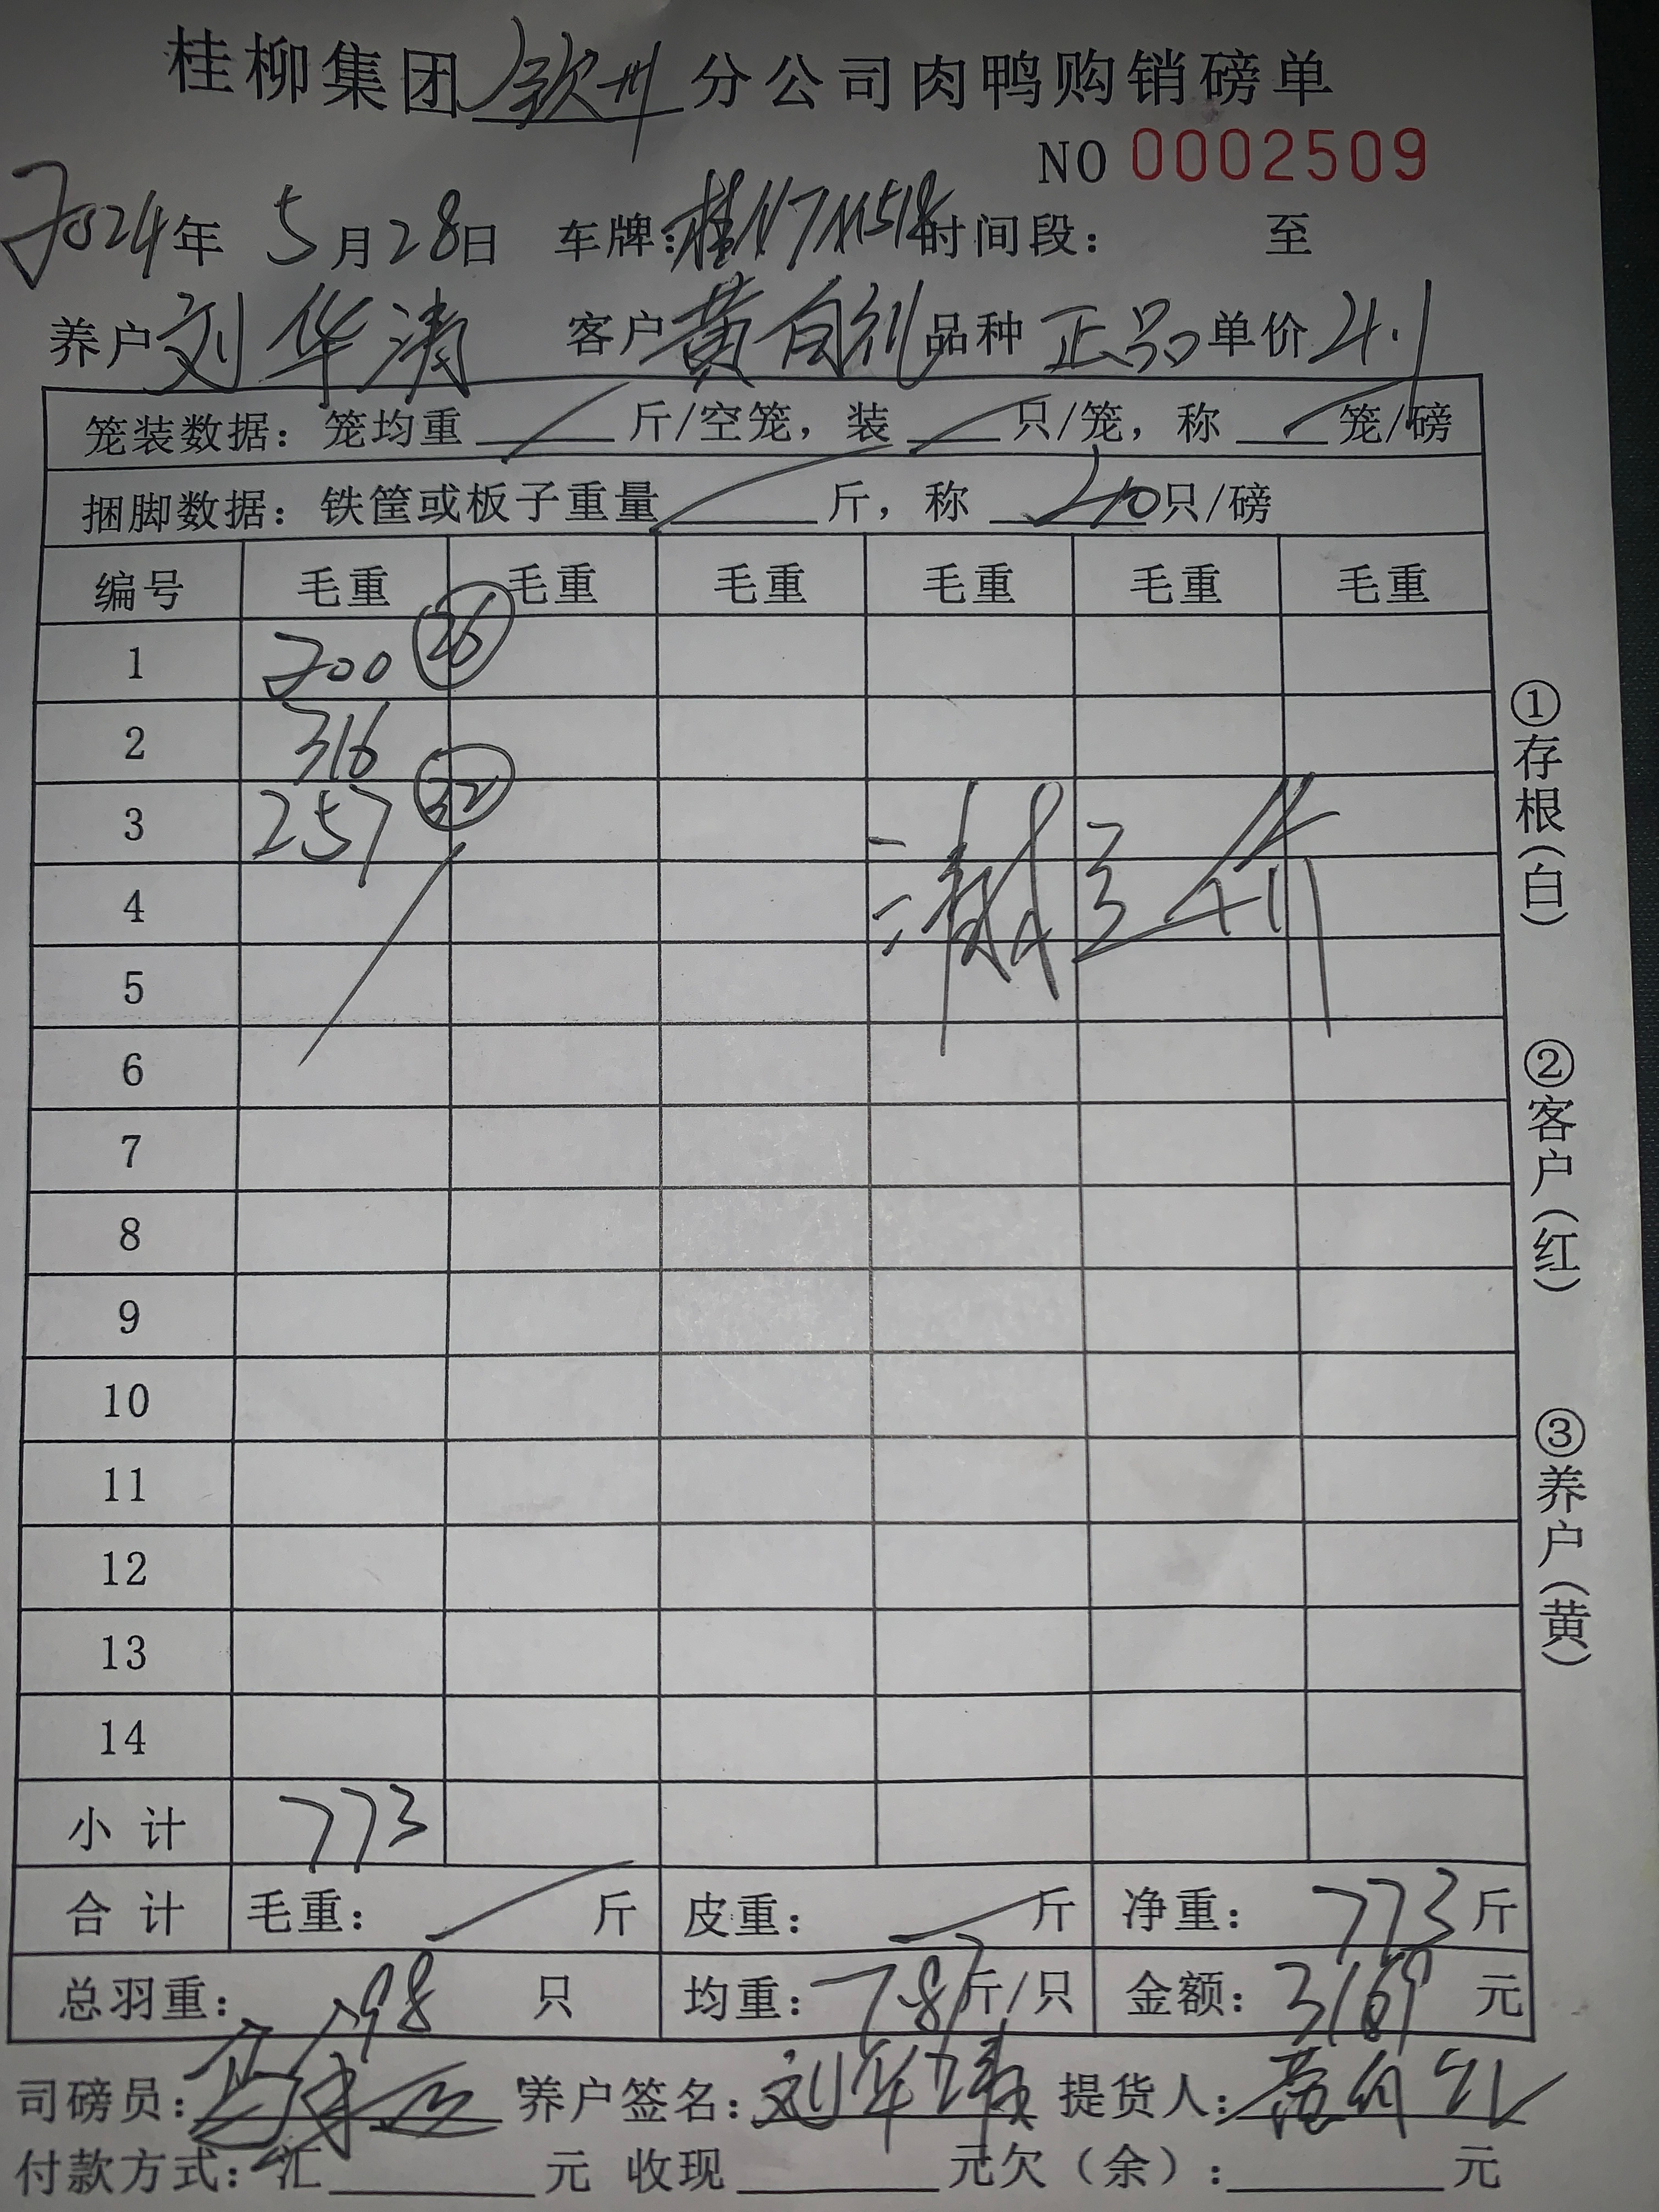 桂柳集团钦州分公司肉鸭购销磅单
NO 0002509
2024年 5月28日 车牌:桂N 时间段: 至
养户刘华清 客户黄自 品种正品单价4.1
笼装数据:笼均重 斤/空笼,装 只/笼,称 笼/磅
捆脚数据:铁筐或板子重量 斤,称 40只/磅
编号 毛重 毛重 毛重 毛重 毛重 毛重
1 200 26
2 316
3 257 32
4
5
6
7
8
9
10
11
12
13
14
小计 773
合计 毛重: 斤 皮重: 斤 净重: 773斤
总羽重: 98 只 均重: 7.87斤/只 金额: 3169 元
司磅员: 养户签名:刘华清 提货人:
付款方式:汇 元 收现 元欠(余): 元
①存根(白)
②客户(红)
③养户(黄)